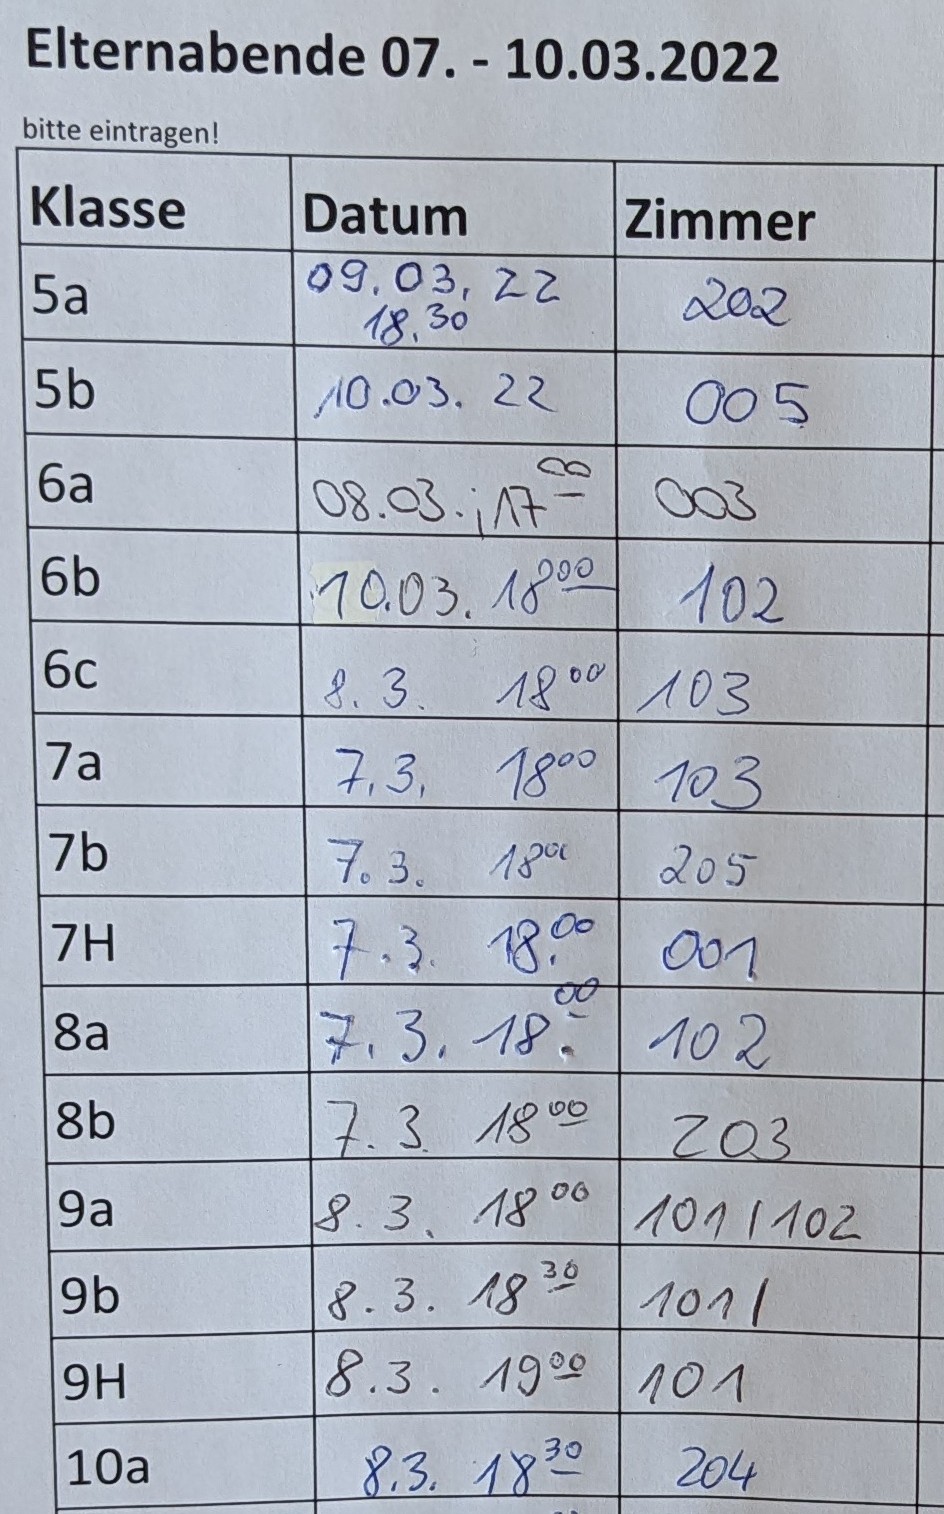 Elternabende 07. - 10.03.2022
bitte eintragen!
Klasse Datum Zimmer
5a 09.03.22 202
18.30
5b 10.03.22 005
6a 08.03.; 17 00 003
6b 10.03. 18 00 102
6c 8.3. 18 00 103
7a 7.3. 18 00 103
7b 7.3. 18 00 205
7H 7.3. 18.00 001
8a 7.3. 18.00 102
8b 7.3. 18 00 203
9a 8.3. 18 00 101/102
9b 8.3. 18 30 101/
9H 8.3. 19 00 101
10a 8.3. 18 30 204